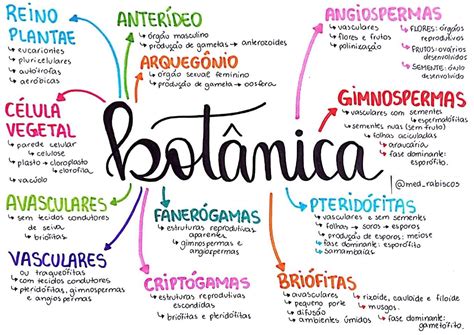 REINO
PLANTAE
↳ eucariontes
↳ pluricelulares
↳ autótrofos
↳ aeróbicas
ANTERÍDEO
↳ órgão masculino
↳ produção de gametas → anterozoides
ARQUEGÔNIO
↳ órgão sexual feminino
↳ produção de gameta → oosfera
ANGIOSPERMAS
↳ vasculares
↳ flores e frutos
↳ polinização
↳ FLORES: órgãos
reprodutivos
↳ FRUTOS: ovários
desenvolvidos
↳ SEMENTE: óvulo
desenvolvido
CÉLULA
VEGETAL
↳ parede celular
↳ celulose
↳ plasto → cloroplasto
↳ clorofila
↳ vacúolo
botânica
GIMNOSPERMAS
↳ vasculares com sementes
↳ espermatófitas
↳ sementes nuas (sem fruto)
↳ folhas aciculadas
↳ araucária
↳ fase dominante:
esporófito
@med_rabiscos
AVASCULARES
↳ sem tecidos condutores
de seiva
↳ briófitas
FANERÓGAMAS
↳ estruturas reprodutivas
aparentes
↳ gimnospermas e
angiospermas
PTERIDÓFITAS
↳ vasculares e sem sementes
↳ folhas → soros → esporos
↳ produção de esporos: meiose
↳ fase dominante: esporófito
↳ samambaias
VASCULARES
ou traqueófitas
↳ com tecidos condutores
↳ pteridófitas, gimnospermas
e angiospermas
CRIPTÓGAMAS
↳ estruturas reprodutivas
escondidas
↳ briófitas e pteridófitas
BRIÓFITAS
↳ avasculares
↳ pequeno porte
↳ difusão
↳ ambientes úmidos
↳ rizoide, cauloide e filoide
↳ musgos
↳ fase dominante:
gametófito